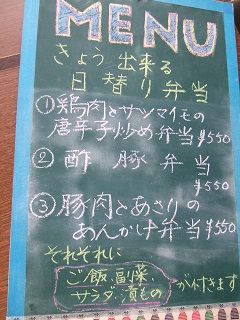 MENU
きょう出来る
日替り弁当
①鶏肉とサツマイモの
唐辛子炒め弁当¥550
②酢豚弁当
¥550
③豚肉とあさりの
あんかけ弁当¥550
それぞれに
ご飯・副菜
サラダ・漬もの
が付きます